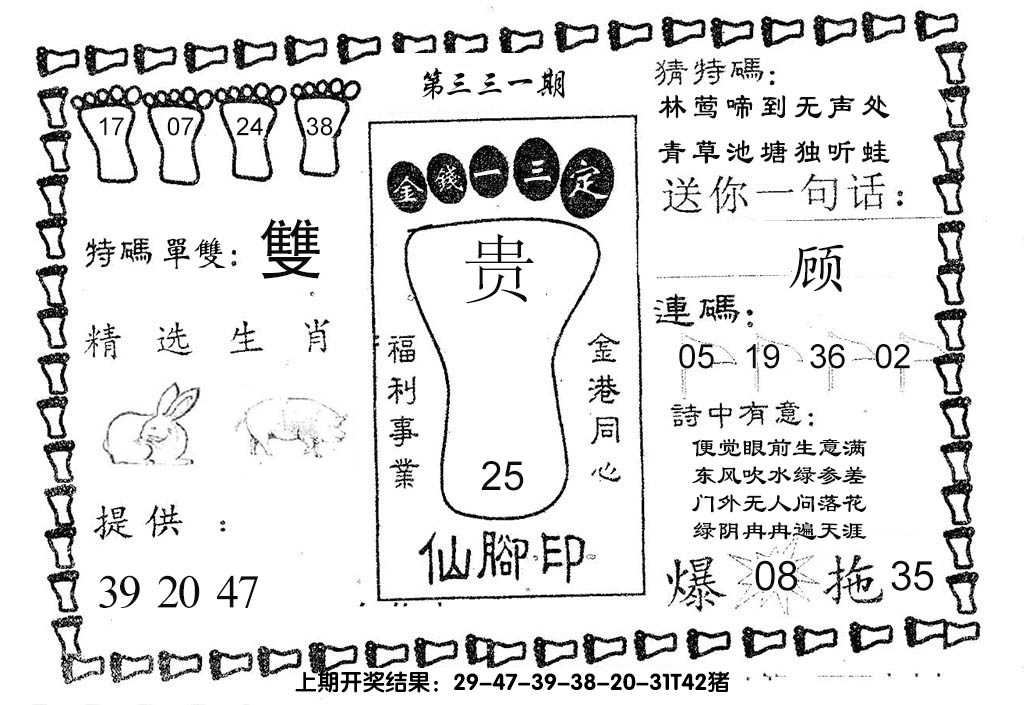 第三三一期
17 07 24 38
特碼單雙：雙
精选生肖
提供：
39 20 47
金錢一三定
贵
福利事業
金港同心
25
仙腳印
猜特碼：
林莺啼到无声处
青草池塘独听蛙
送你一句话：
顾
連碼：
05 19 36 02
詩中有意：
便觉眼前生意满
东风吹水绿参差
门外无人问落花
绿阴冉冉遍天涯
爆 08 拖 35
上期开奖结果：29-47-39-38-20-31T42猪